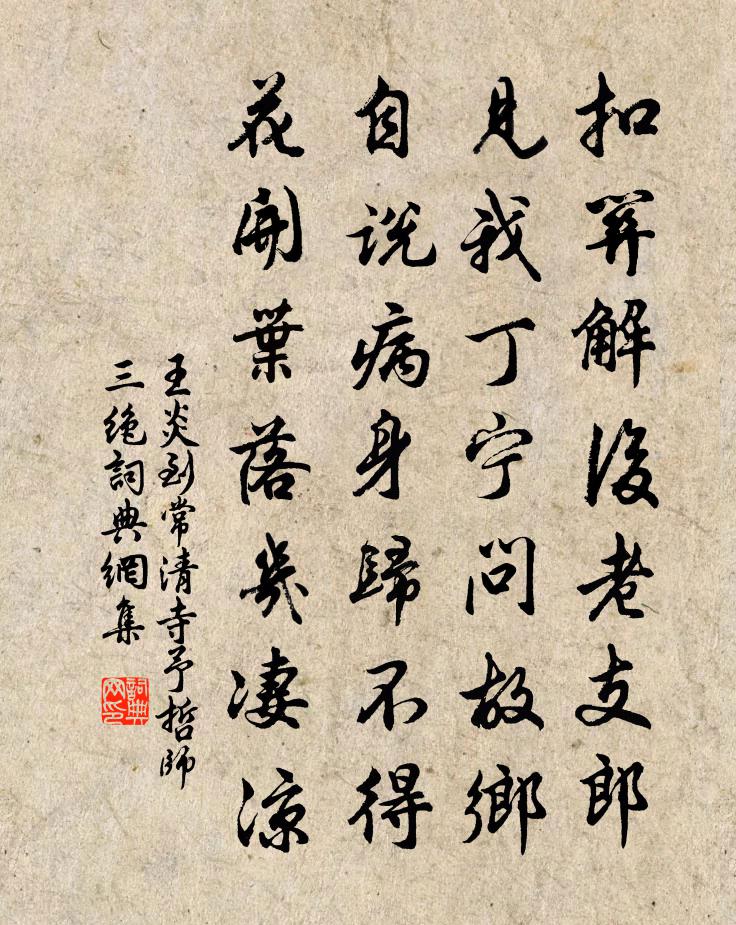 扣關解後老支郎
見我丁宁問故鄉
自説病身歸不得
花開葉落幾凄凉
王炎到常清寺予哲師
三絕詞典網集
詞典
网印